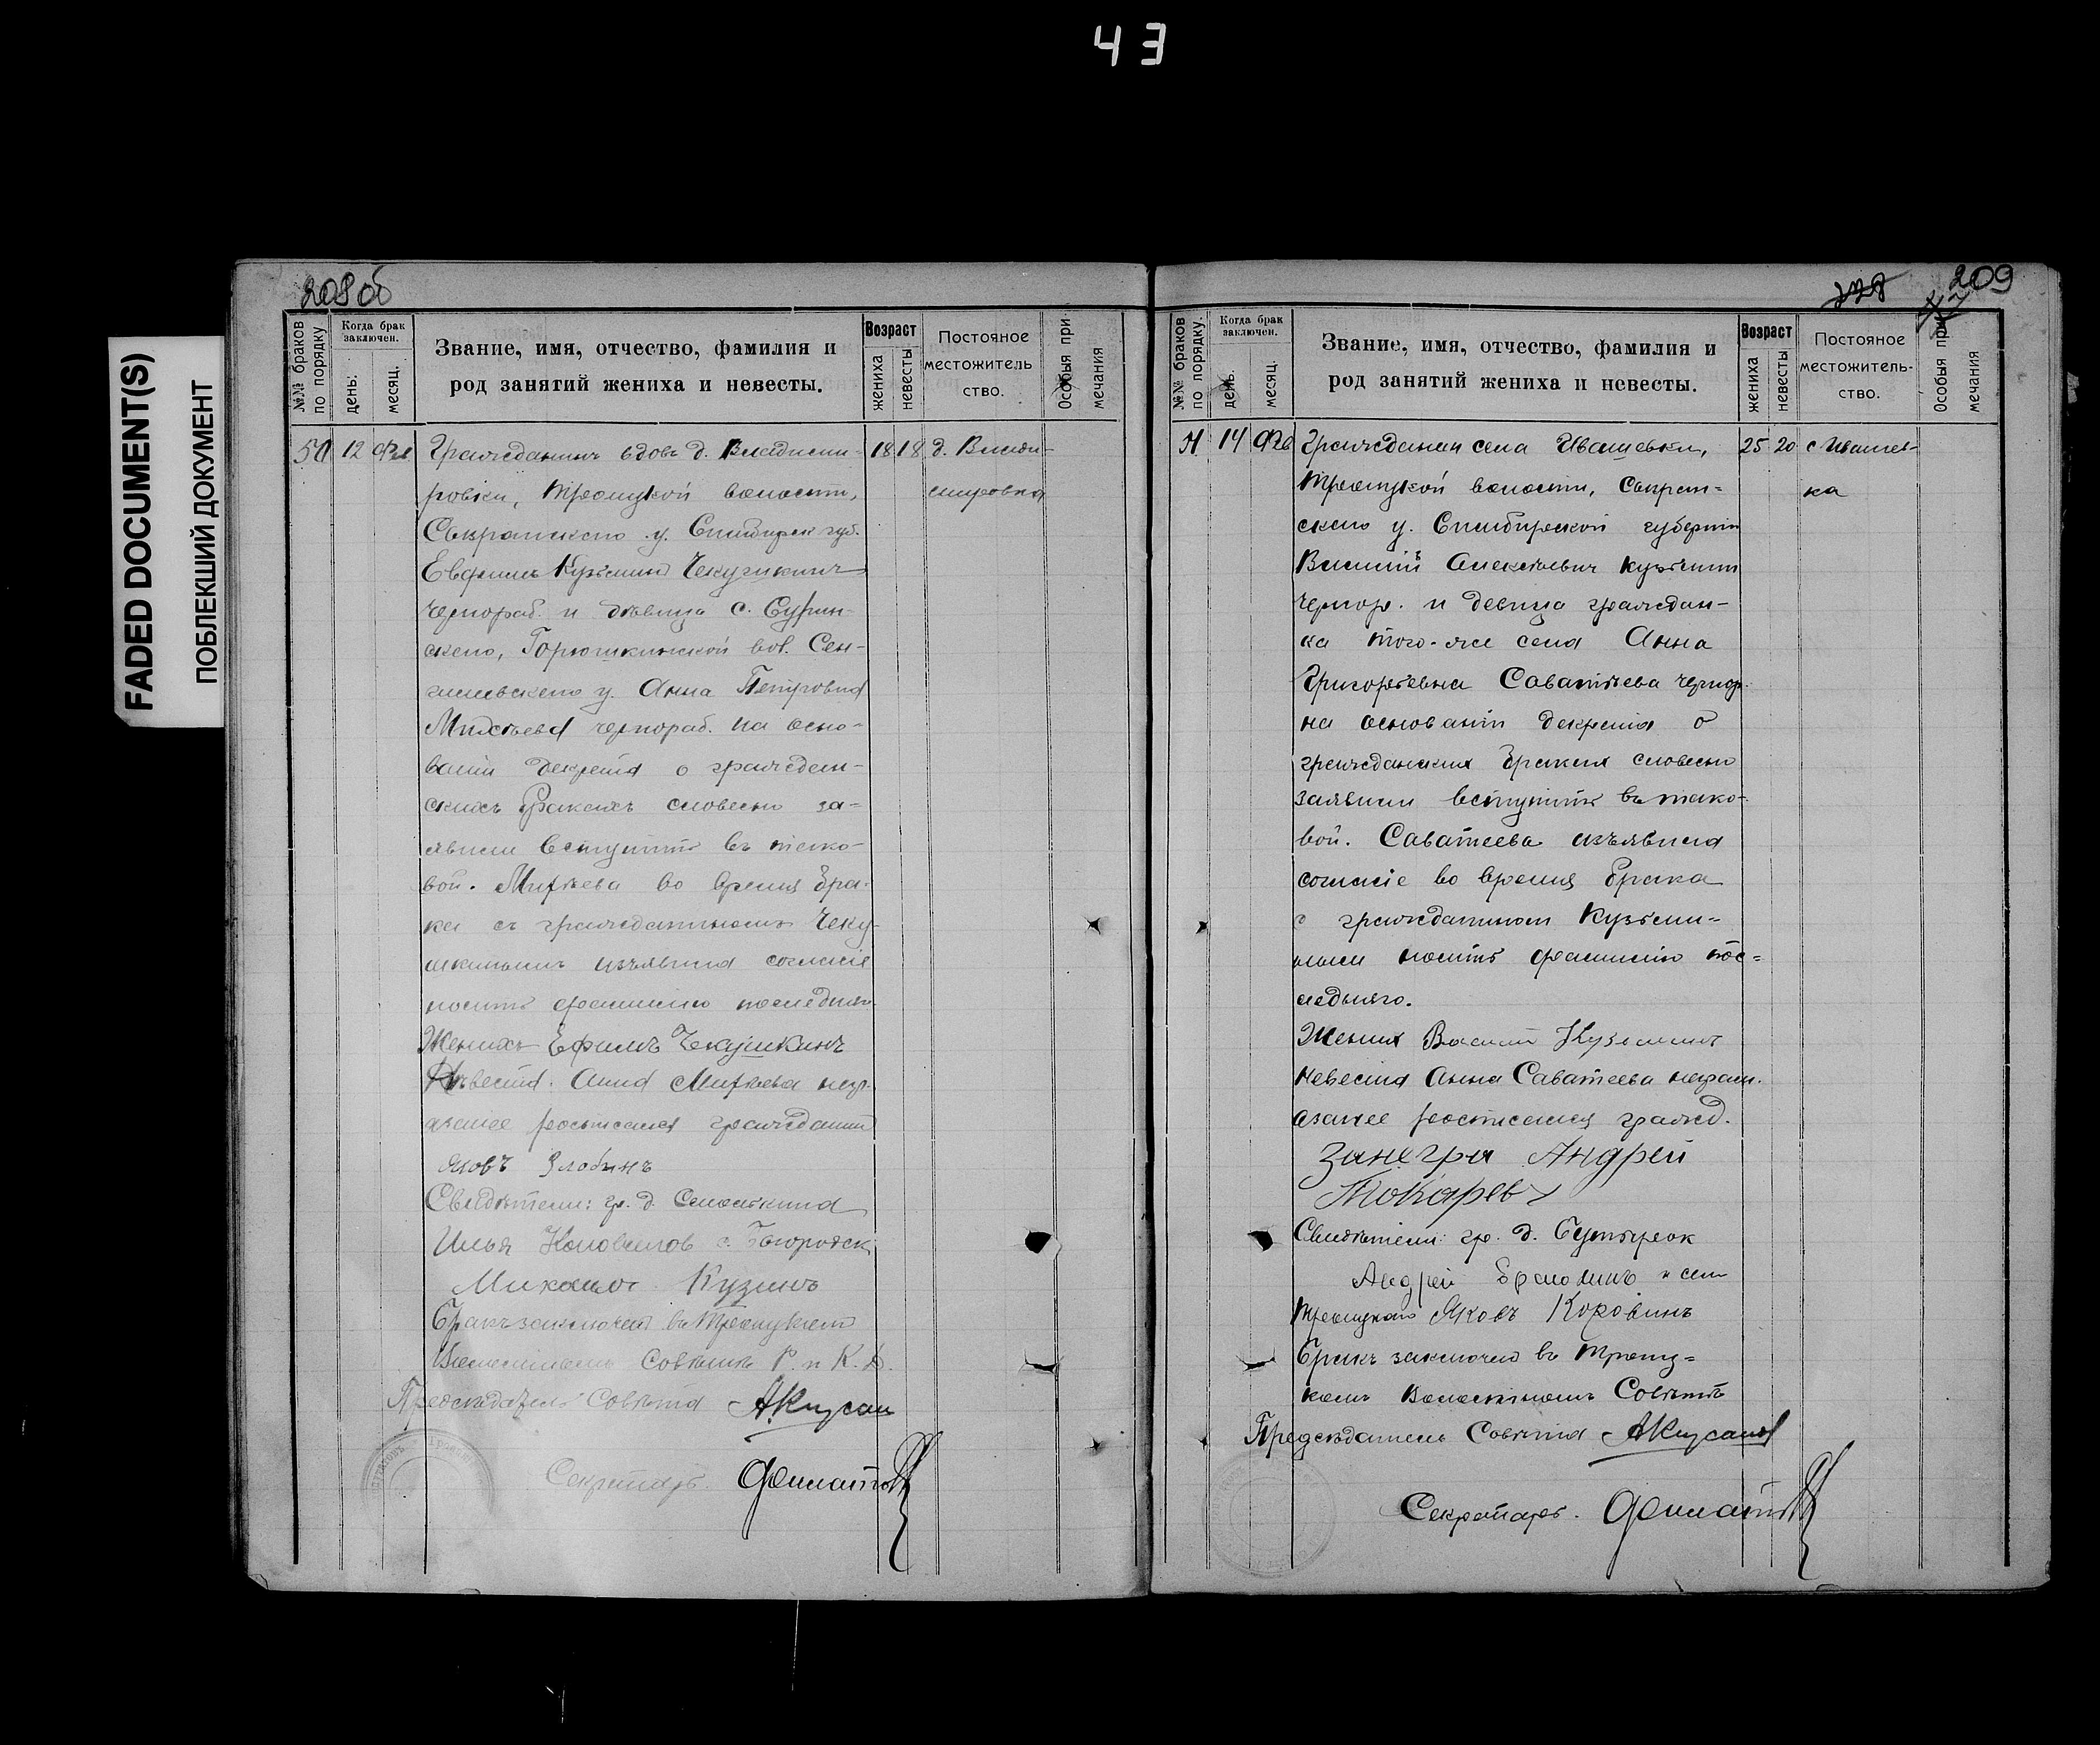 43
FADED DOCUMENT(S)
ПОБЛЕКШИЙ ДОКУМЕНТ
208 об
№№ браков по порядку
Когда брак заключен.
день:
месяц.
Звание, имя, отчество, фамилия и
род занятий жениха и невесты.
Возраст
жениха
невесты
Постояное
местожитель
ство.
Особыя при-
мечания
50 12 Фев Гражданинъ вдовъ д. Владими- 18 18 д. Влади-
ровки, Троицкой волости, мировка
Сызранскаго у. Симбирск губ.
Евфимъ Кузьминъ Чекушкинъ
чернораб. и дѣвица с. Сурин-
скаго, Горюшкинской вол. Сен-
гилевскаго у. Анна Петровна
чернораб. на осно-
ваніи декрета о граждан-
скихъ бракахъ словесно за-
явили вступить въ тако-
вой. во время бра-
ка съ гражданиномъ Чеку-
шкинымъ изъявила согласіе
носить фамилію последняго
Женихъ Ефимъ Чекушкинъ
Невеста: Анна негр.
а за нее росписался гражданин
Яковъ Злобинъ
Свидѣтели: гр. д.
Илья с. Богородск.
Михаилъ Кузинъ
Бракъ заключен въ Троицком
Волостномъ Совѣтѣ Р. и К. Д.
Председатель Совѣта
Секретарь.
209
№№ браков по порядку.
Когда брак заключен.
день.
месяц.
Звание, имя, отчество, фамилия и
род занятий жениха и невесты.
Возраст
жениха
невесты
Постояное
местожитель-
ство.
Особыя при
мечания
14 Фев Гражданин села Ивашевки, 25 20 с Ивашев-
Троицкой волости, Сызран- ка
скаго у. Симбирской губерніи
Василій Алексѣевич Кузьмин
чернор. и девица граждан-
ка того-же села Анна
Григорьевна Саватѣева чернор.
на основаніи декрета о
гражданских браках словесно
заявили вступить въ тако-
вой. Саватеева изъявила
согласіе во время брака
с гражданином Кузьми-
ным носить фамилію пос-
ледняго.
Жених Василий Кузьминъ
невеста Анна Саватеева неграм.
а за нее росписался гражд.
Занегра Андрей
Токарев
Свидѣтели: гр. д. Бутырок
Андрей Ермолинъ и села
Троицкаго Яковъ Коровинъ
Бракъ заключен въ Троиц-
комъ Волостномъ Совѣтѣ
Предсѣдатель Совѣта
Секретарь.